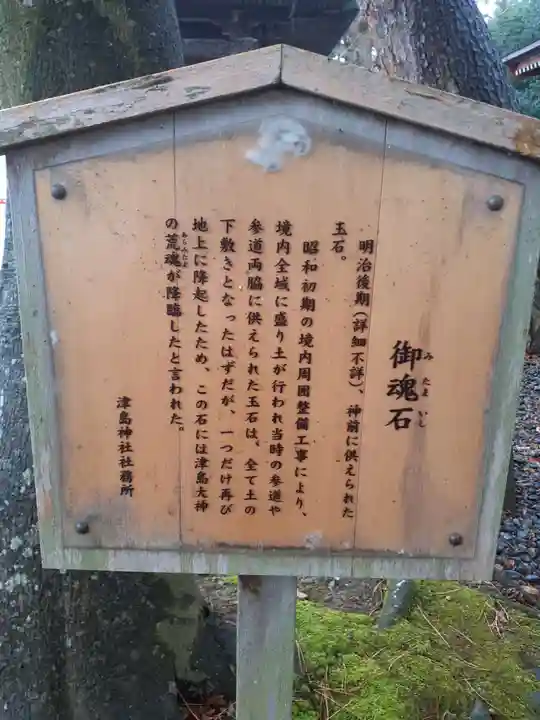 御魂石
みたまいし
明治後期(詳細不詳)、神前に供えられた
玉石。
昭和初期の境内周囲整備工事により、
境内全域に盛り土が行われ当時の参道や
参道両脇に供えられた玉石は、全て土の
下敷きとなったはずだが、一つだけ再び
地上に隆起したため、この石には津島大神
の荒魂が降臨したと言われた。
あらみたま
津島神社社務所